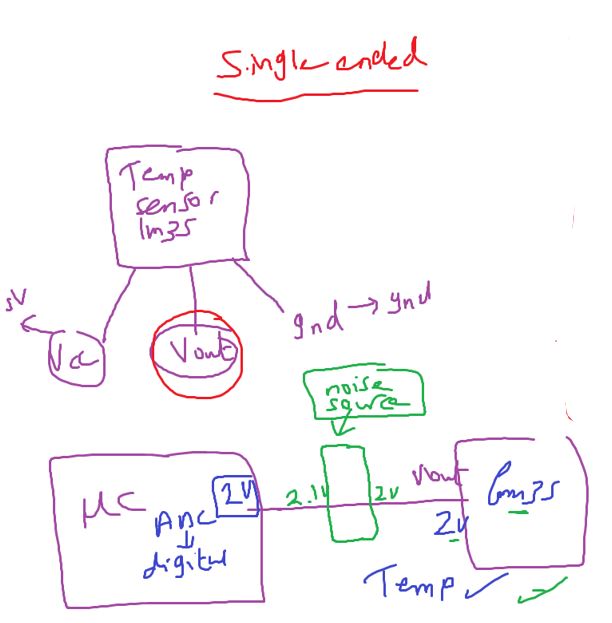 Single ended
Temp
sensor
lm35
5V
Vcc
Vout
gnd → gnd
noise
source
μC
ADC
digital
2V
2.1V
2V
Vout
lm35
2V
Temp